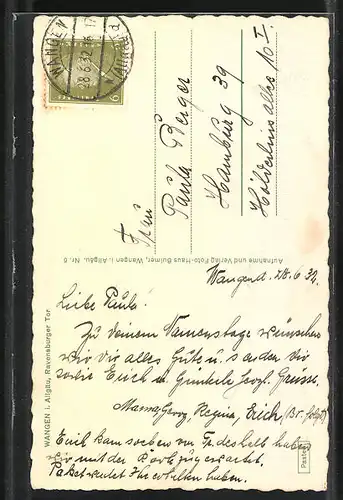 WANGEN
28.6.32
6
Frau
Paula Berger
Hamburg 39
Hölderlinsallee 10 I.
Aufnahme und Verlag Foto-Haus Gulmer, Wangen i. Allgäu. Nr. 6
WANGEN i. Allgäu, Ravensburger Tor
Wangen d. 28.6.32.
Liebe Paula!
Zu deinem Namenstage wünschen
wir dir alles Gute u. senden dir
sowie Erich u. Günterle herzl. Grüsse.
Mama, Georg, Regina, Erich (Br. folgt)
Emil kam soeben von deshalb haben
wir mit der Karte zugewartet.
Paket werdet Ihr erhalten haben.